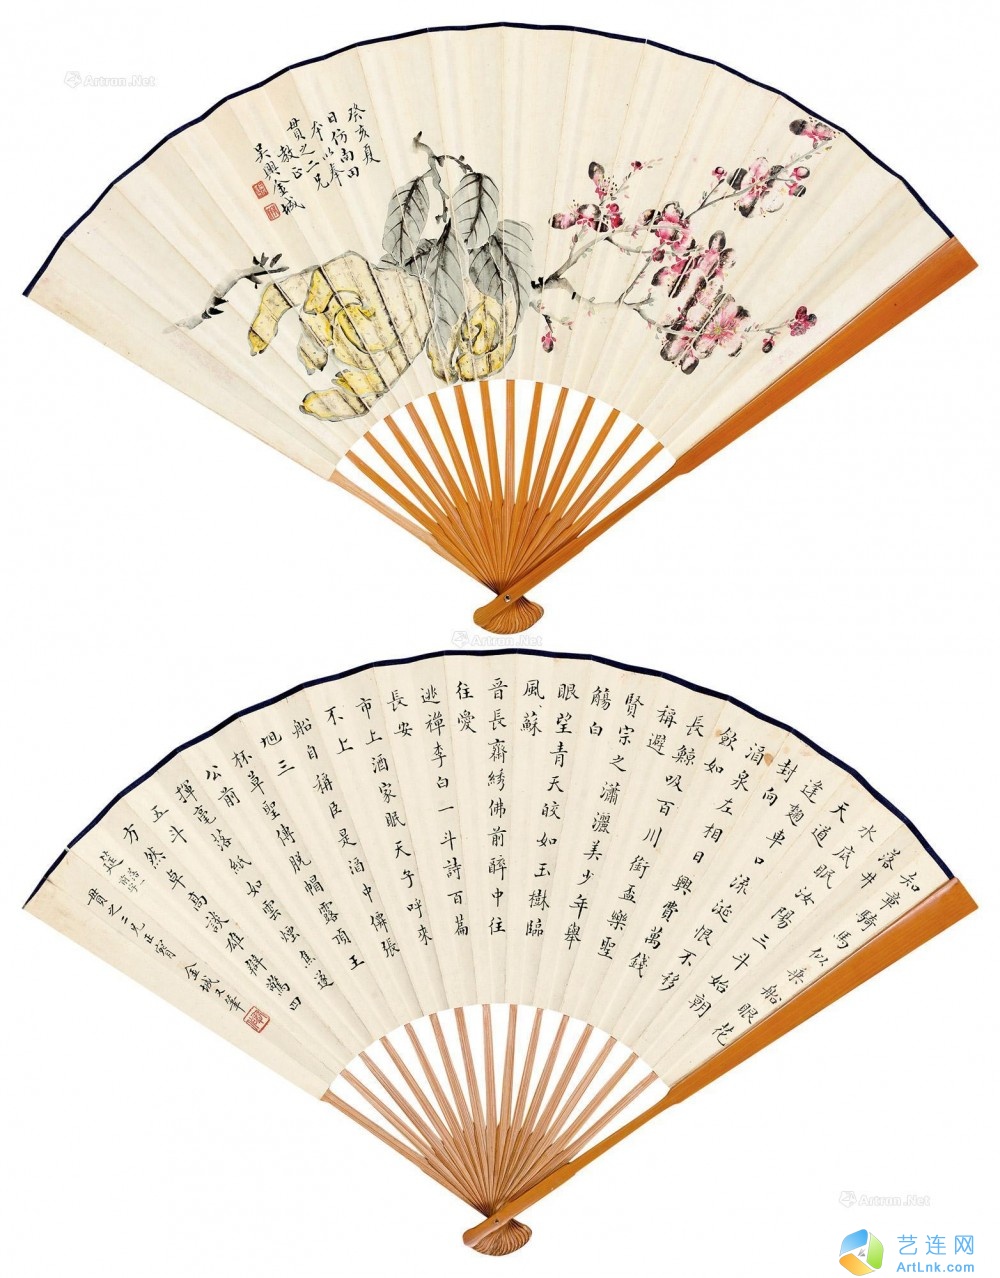 癸亥夏
日仿南田
本以奉
貫之二兄
教正
吳興金城
知章騎馬似乘船眼花
落井
水底眠汝陽三斗始朝
天道
逢麴車口流涎恨不移
封向
酒泉左相日興費萬錢
飲如
長鯨吸百川銜盃樂聖
稱避
賢宗之瀟灑美少年舉
觴白
眼望青天皎如玉樹臨
風蘇
晉長齋綉佛前醉中往
往愛
逃禪李白一斗詩百篇
長安
市上酒家眠天子呼來
不上
船自稱臣是酒中僊張
旭三
杯草聖傳脫帽露頂王
公前
揮毫落紙如雲煙焦遂
五斗
方然卓高談雄辯驚四
筵
貫之二兄正 金城又筆
Artron.Net
Artron.Net
Artron.Net
艺连网
ArtLnk.com